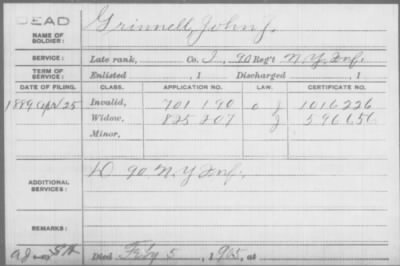 DEAD
NAME OF SOLDIER: Grinnell, John J.
SERVICE: Late rank, Co. I, 90 Reg't N.Y. Inf.
TERM OF SERVICE: Enlisted , 1 Discharged , 1
DATE OF FILING. CLASS. APPLICATION NO. LAW. CERTIFICATE NO.
1889 Apr 25 Invalid, 701190 1016226
Widow, 825207 596656
Minor,
ADDITIONAL SERVICES: D 90 N.Y. Inf.
REMARKS:
Died Feby 5, 1905, at